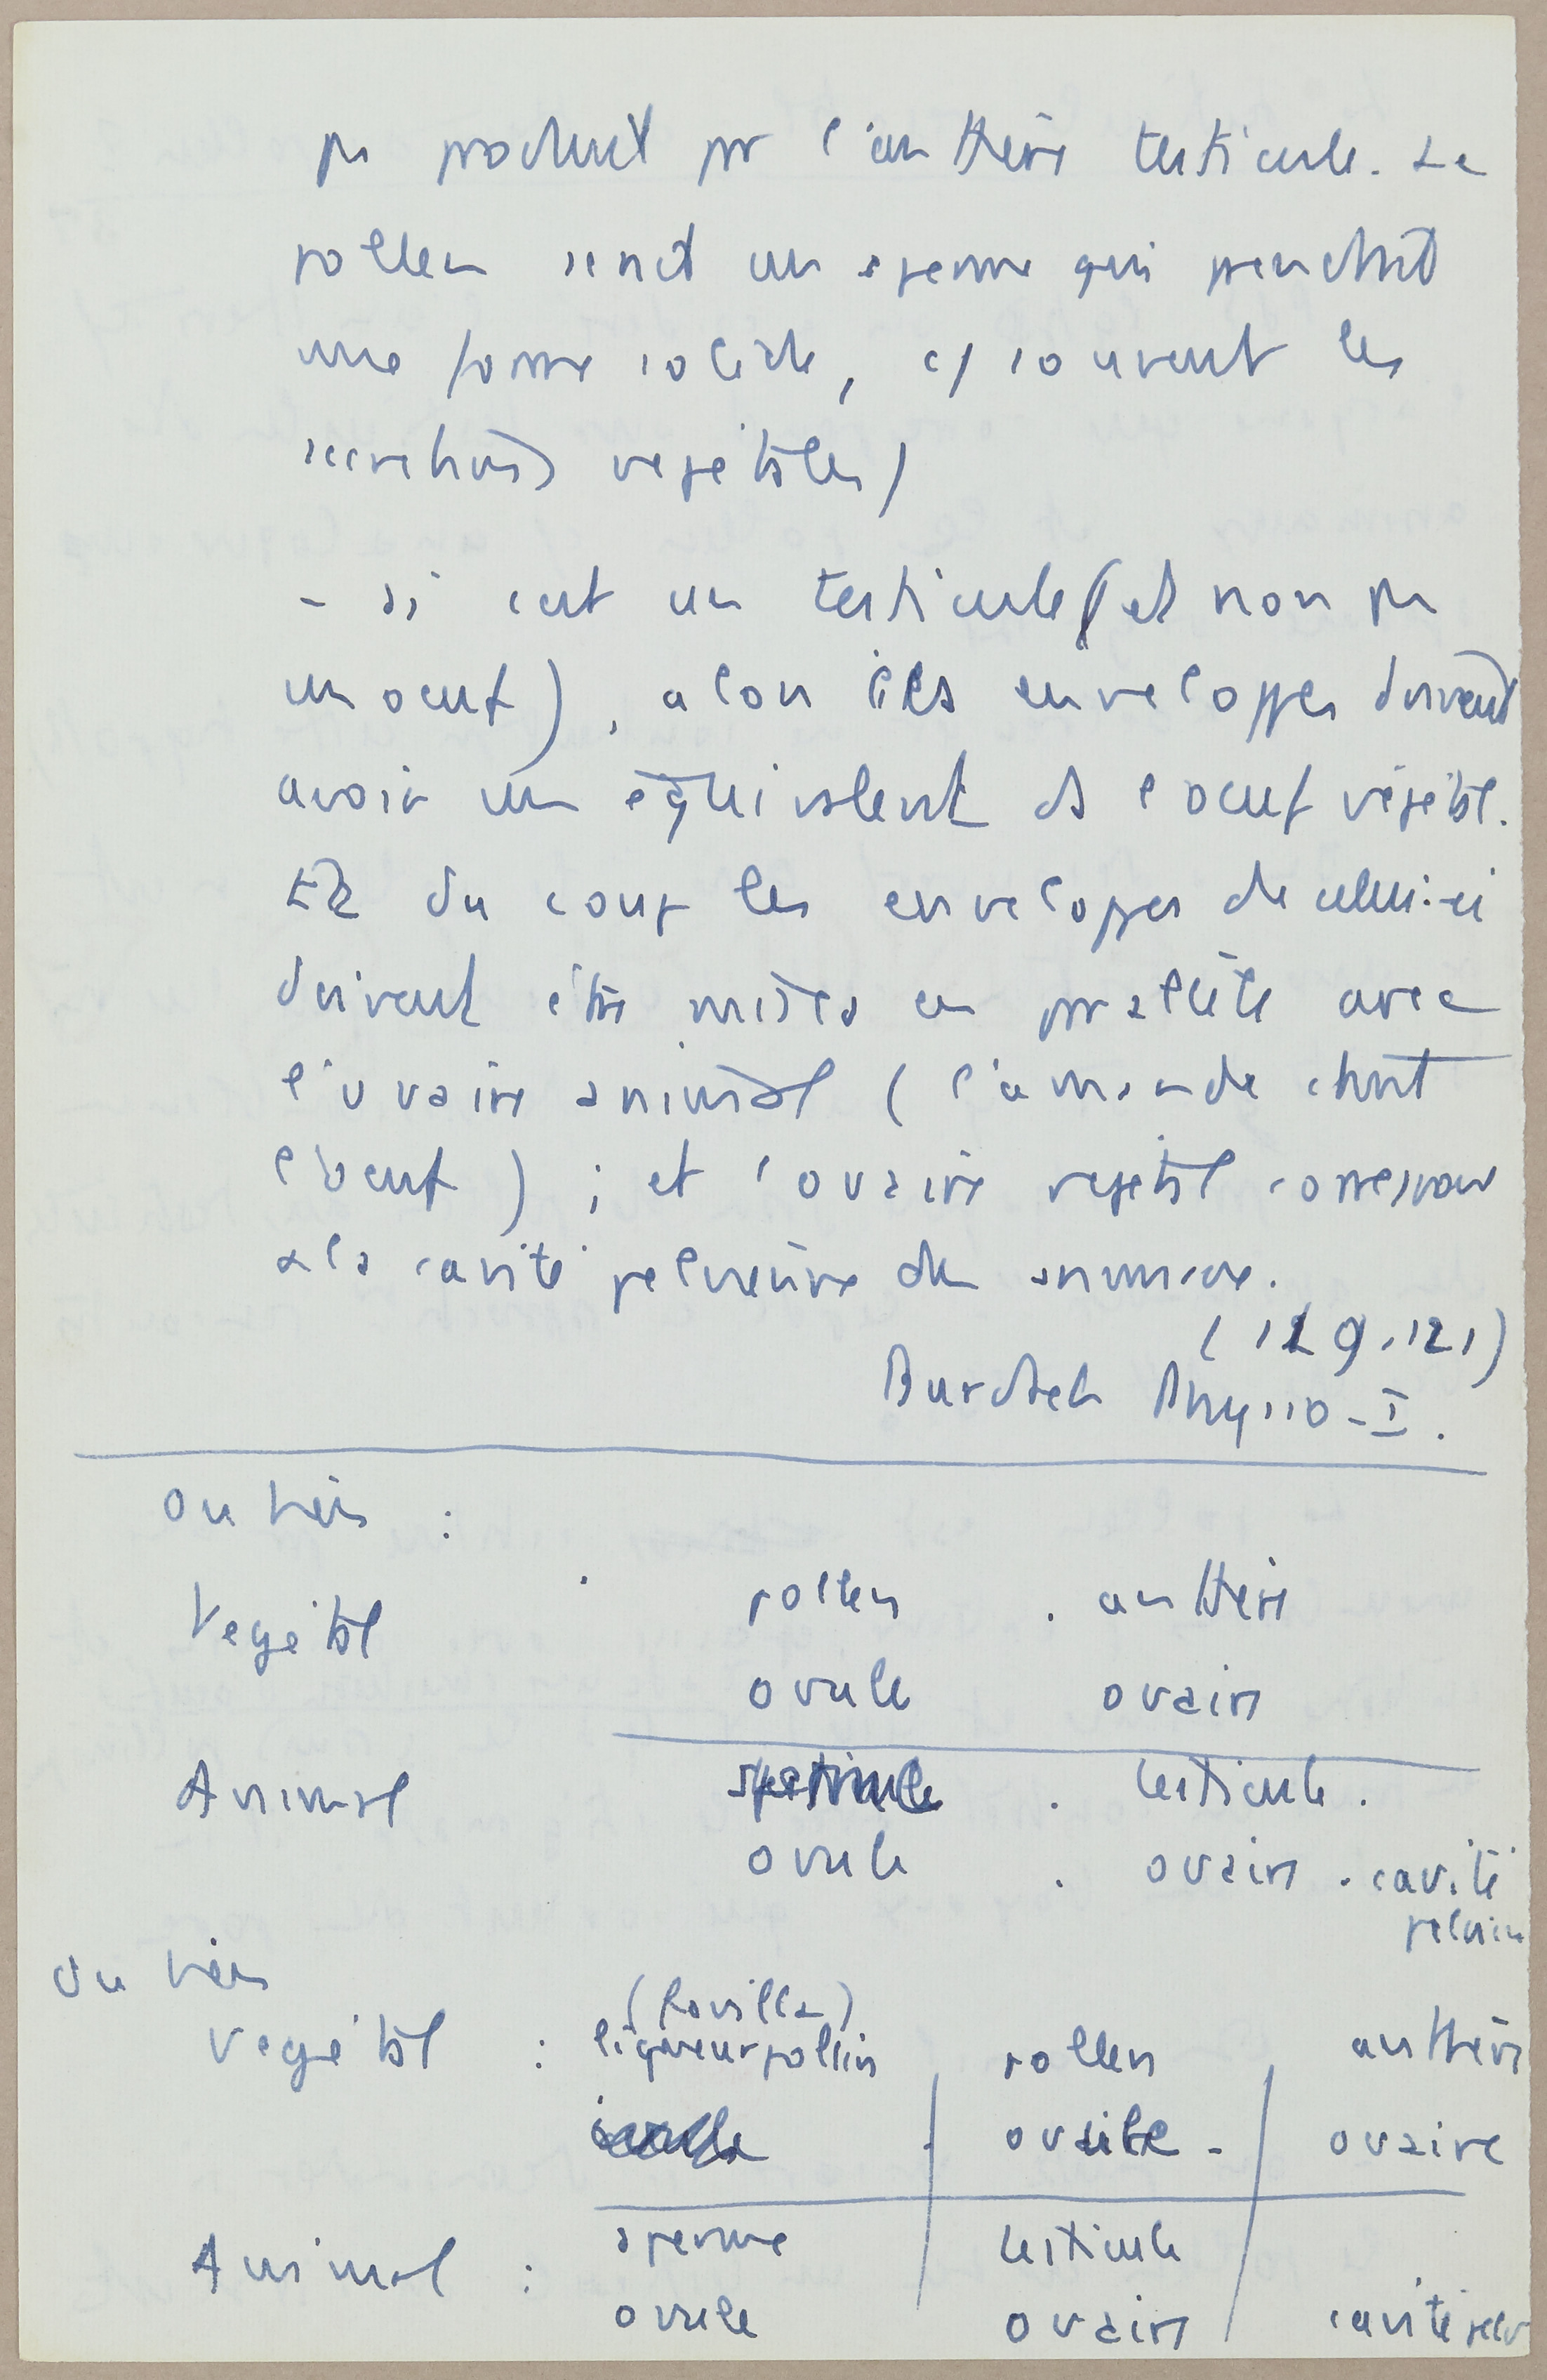 pr produit pr l'anthère testicule. Le
pollen serait un sperme qui prendrait
une forme solide, c/ souvent les
secretions vegetales)
- si c'est un testicule (et non pas
un oeuf), alors ses enveloppes doivent
avoir un équivalent ds l'oeuf végétal.
Et du coup les enveloppes de celui-ci
doivent être mises en parallèle avec
l'ovaire animal (l'amande étant
l'oeuf) ; et l'ovaire vegetal correspond
a la cavité pelvienne des animaux.
(119.121)
Burdach Physio-I.
ou bien :
Vegetal pollen . anthère
ovule ovaire
Animal . testicule .
ovule . ovaire . cavité
pelvien
Ou bien
(fovilla)
Vegetal : liqueur pollin pollen anthère
ovaire
Animal : sperme testicule
ovule ovaire cavité pelv